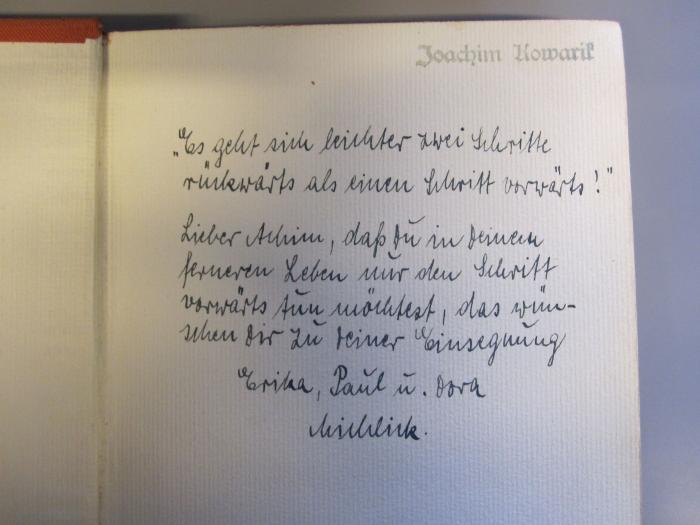 Joachim Kowarik
„Es geht sich leichter zwei Schritte
rückwärts als einen Schritt vorwärts!"
Lieber Achim, daß Du in Deinem
ferneren Leben nur den Schritt
vorwärts tun möchtest, das wün-
schen Dir zu Deiner Einsegnung
Erika, Paul u. Dora